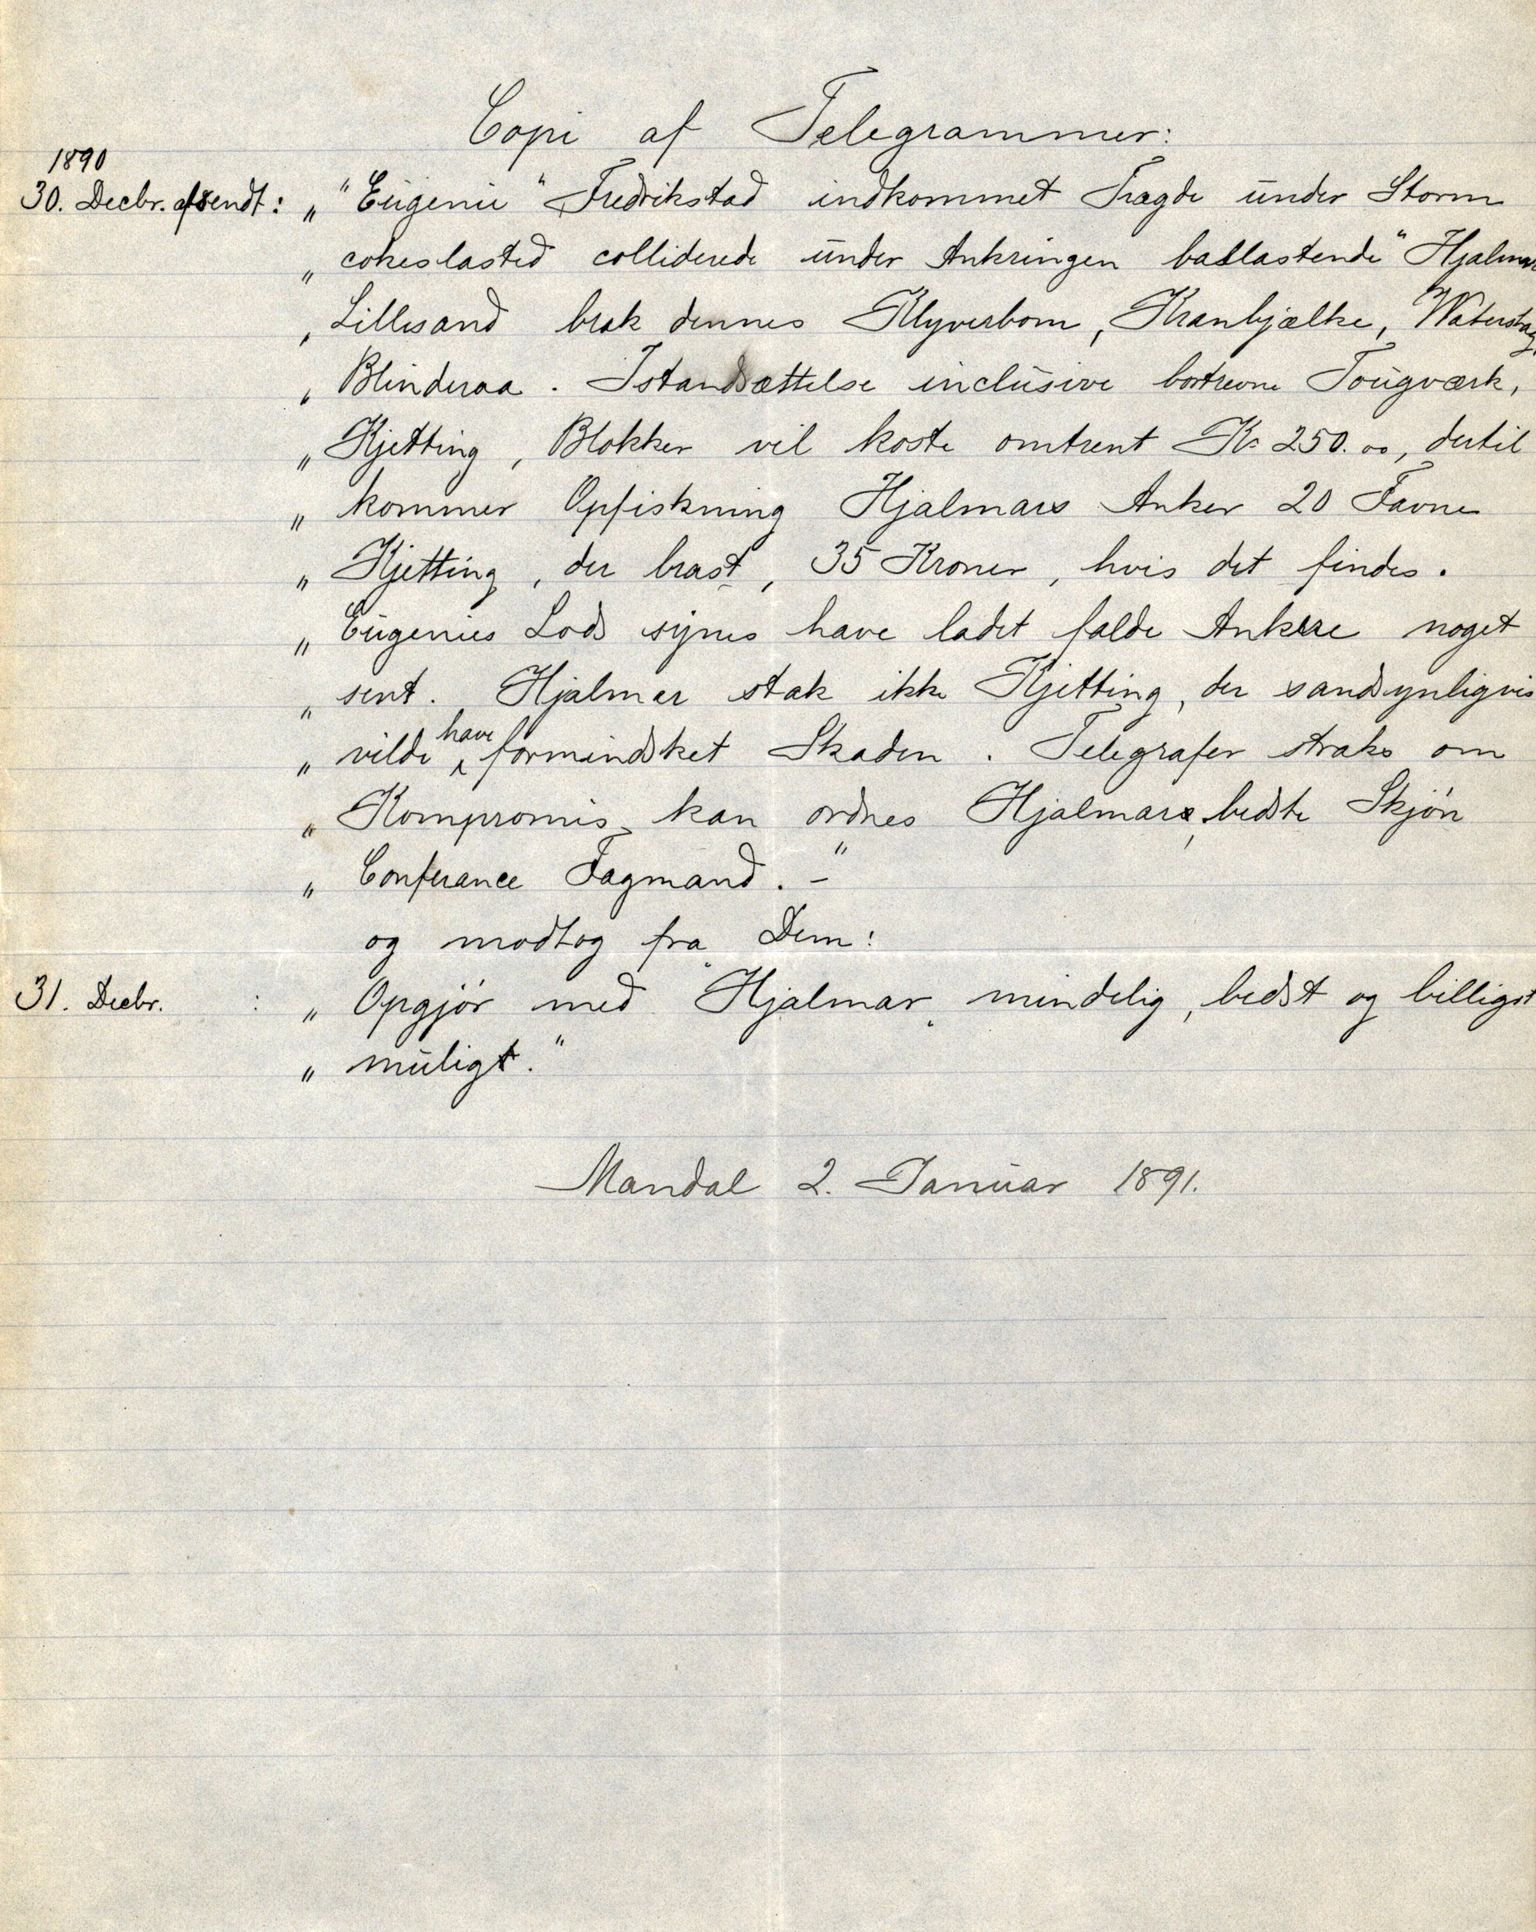 Copi af Telegrammer:
1890
30. Decbr. afsendt: „ "Eugenie" Fredrikstad indkommet Tregde under Storm
„ cokeslasted colliderede under Ankringen ballastende "Hjalmar
„ Lillesand brak dennes Klyverbom, Kranbjælke, Waterstag,
„ Blinderaa. Istandsættelse inclusive bortrevne Tougværk,
„ Kjetting, Blokker vil koste omtrent Kr 250.00, dertil
„ kommer Opfiskning Hjalmars Anker 20 Favne
„ Kjetting, der brast, 35 Kroner, hvis det findes.
„ Eugenies Lods synes have ladet falde Ankere noget
„ sent. Hjalmar stak ikke Kjetting, der sandsynligvis
„ vilde have formindsket Skaden. Telegrafer straks om
„ Kompromis kan ordnes Hjalmars, bedste Skjøn
„ Conferance Fagmand. – "
og modtog fra Dem:
31. Decbr. : „ Opgjør med "Hjalmar„ mindelig, bedst og billigst
„ muligt."
Mandal 2. Januar 1891.